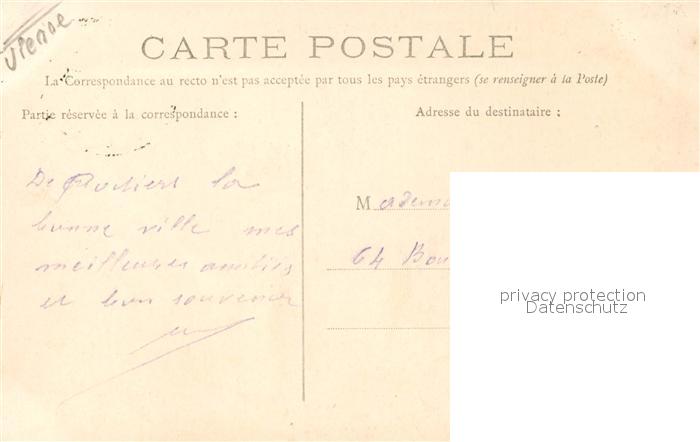 Vienne
CARTE POSTALE
La Correspondance au recto n'est pas acceptée par tous les pays étrangers (se renseigner à la Poste)
Partie réservée à la correspondance :
Adresse du destinataire :
De Poitiers la
bonne ville mes
meilleures amitiés
et bon souvenir
Madem
64 Bou
privacy protection
Datenschutz